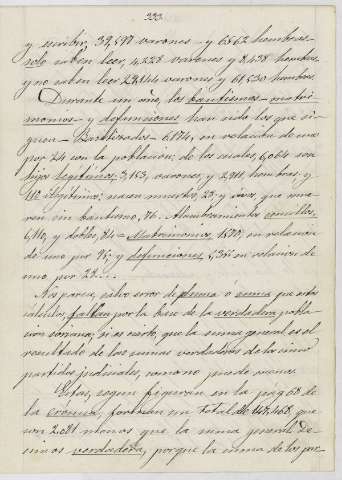 333.
y escribir, 39,597 varones - y 6562 hembras
solo saben leer, 4,228 varones y 8,438 hembras,
y no saben leer 29,144 varones y 61,530 hembras.
Durante un año, los bautismos - matri-
monios - y defunciones han sido los que si-
guen - Bautizados - 6,174, en relacion de uno
por 24 con la poblacion; de los cuales, 6,064 son
hijos legítimos; 3,153, varones, y 2,911, hembras, y
110 ilegítimos; nacen muertos, 25 y vivos, que mue-
ren sin bautismo, 76. Alumbramientos sencillos,
6,110, y dobles, 84 = Matrimonios, 1,570; en relacion
de uno por 95; y defunciones, en relacion de
uno por 28....
Nos parece, salvo error de pluma ó suma que estos
cálculos, fallan por la base de la verdadera pobla-
cion soriana; si es cierto, que la suma general es el
resultado de las sumas verdaderas de los cinco
partidos judiciales, como no puede menos.
Estas, segun figuran en la pág 68 de
la crónica, forman un total de 147,468, que
son 2,021 menos que la suma general de-
cimos verdadera, porque la suma de los par-